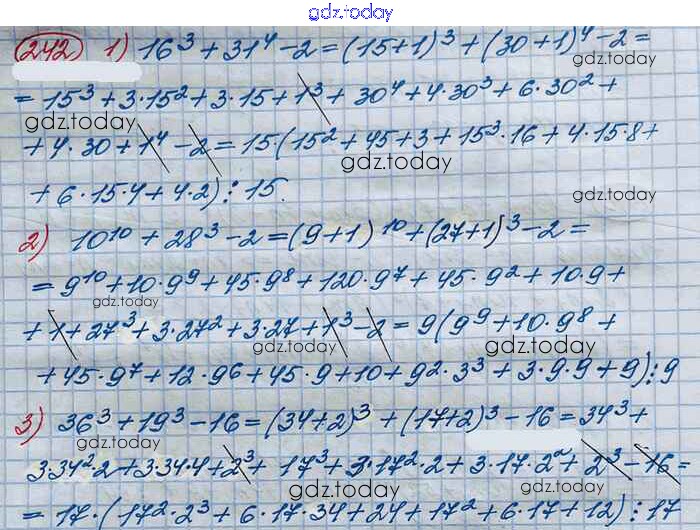 gdz.today
242 1) 16³ + 31⁴ - 2 = (15+1)³ + (30+1)⁴ - 2 =
gdz.today
= 15³ + 3·15² + 3·15 + 1³ + 30⁴ + 4·30³ + 6·30² +
gdz.today
+ 4·30 + 1⁴ - 2 = 15·(15² + 45 + 3 + 15³·16 + 4·15·8 +
gdz.today
+ 6·15·4 + 4·2) ⋮ 15.
gdz.today
2) 10¹⁰ + 28³ - 2 = (9+1)¹⁰ + (27+1)³ - 2 =
= 9¹⁰ + 10·9⁹ + 45·9⁸ + 120·9⁷ + 45·9² + 10·9 +
gdz.today
+ 1 + 27³ + 3·27² + 3·27 + 1³ - 2 = 9(9⁹ + 10·9⁸ +
gdz.today gdz.today
+ 45·9⁷ + 12·9⁶ + 45·9 + 10 + 9²·3³ + 3·9·9 + 9) ⋮ 9
3) 36³ + 19³ - 16 = (34+2)³ + (17+2)³ - 16 = 34³ +
gdz.today
3·34²·2 + 3·34·4 + 2³ + 17³ + 3·17²·2 + 3·17·2² + 2³ - 16 =
gdz.today gdz.today
= 17·(17²·2³ + 6·17·34 + 24 + 17² + 6·17 + 12) ⋮ 17